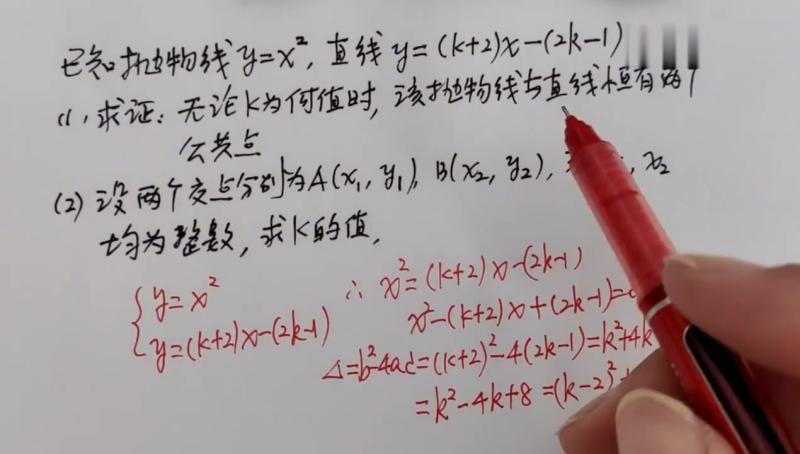 已知抛物线y=x²,直线y=(k+2)x-(2k-1)
(1)求证:无论k为何值时,该抛物线与直线恒有两个
公共点
(2)设两个交点分别为A(x₁,y₁),B(x₂,y₂), x₂
均为整数,求k的值,
{y=x²
y=(k+2)x-(2k-1)
∴ x²=(k+2)x-(2k-1)
x²-(k+2)x+(2k-1)=
Δ=b²-4ac=(k+2)²-4(2k-1)=k²+4k
=k²-4k+8=(k-2)²